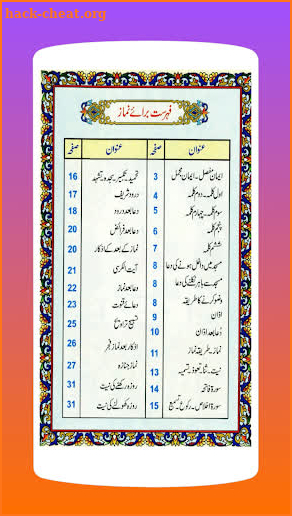 hack-cheat.org
فہرست برائے نماز
عنوان صفحہ عنوان صفحہ
ایمان مفصل۔ ایمان مجمل 3
اول کلمہ۔ دوم کلمہ 4
سوم کلمہ۔ چہارم کلمہ 5
پنجم کلمہ 6
ششم کلمہ 7
مسجد میں داخل ہونے کی دعا 8
مسجد سے باہر نکلنے کی دعا 8
وضو کرنے کا طریقہ 8
اذان 9
دُعا بعد اذان 10
نماز۔ طریقہ نماز 11
نیت۔ ثنا۔ تعوذ۔ تسمیہ 13
سورۃ فاتحہ 14
سورۃ اخلاص۔ رکوع۔ تسمیع 15
تحمید۔ تکبیر۔ سجدہ۔ تشہد 16
درود شریف 17
دعا بعد درود 18
دعا بعد فرائض 20
نماز کے بعد کے اذکار 20
آیت الکرسی 21
دعا بعد نماز 22
دعائے قنوت 23
تسبیح تراویح 25
اذکار بعد نماز فجر 26
نماز جنازہ 27
روزہ رکھنے کی نیت 31
روزہ کھولنے کی نیت 31
hack-cheat.org